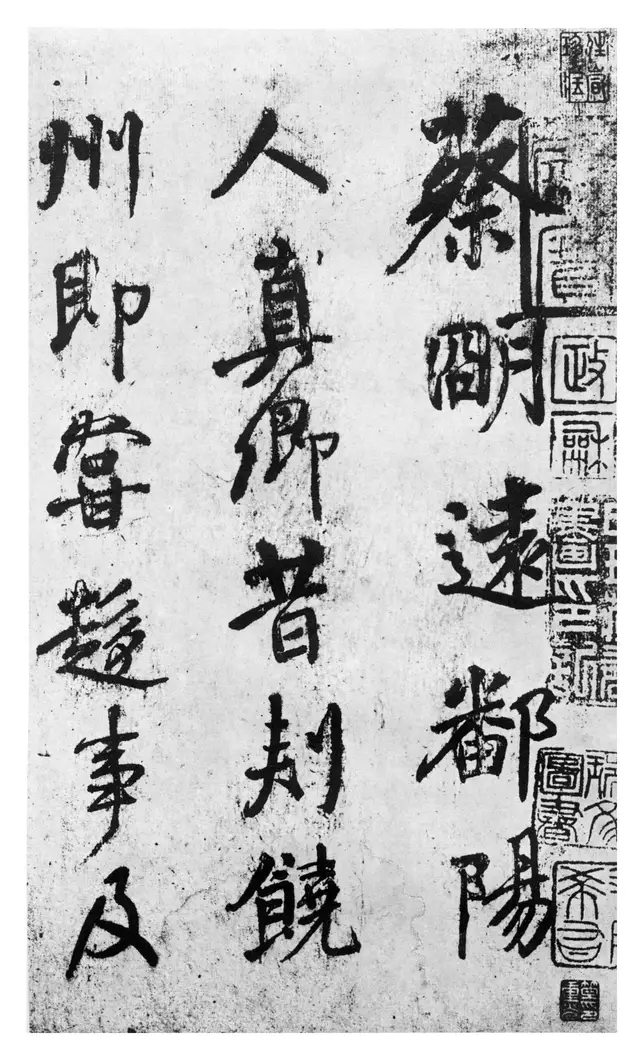 蔡明遠鄱陽
人真卿昔刺饒
州即嘗趍事及